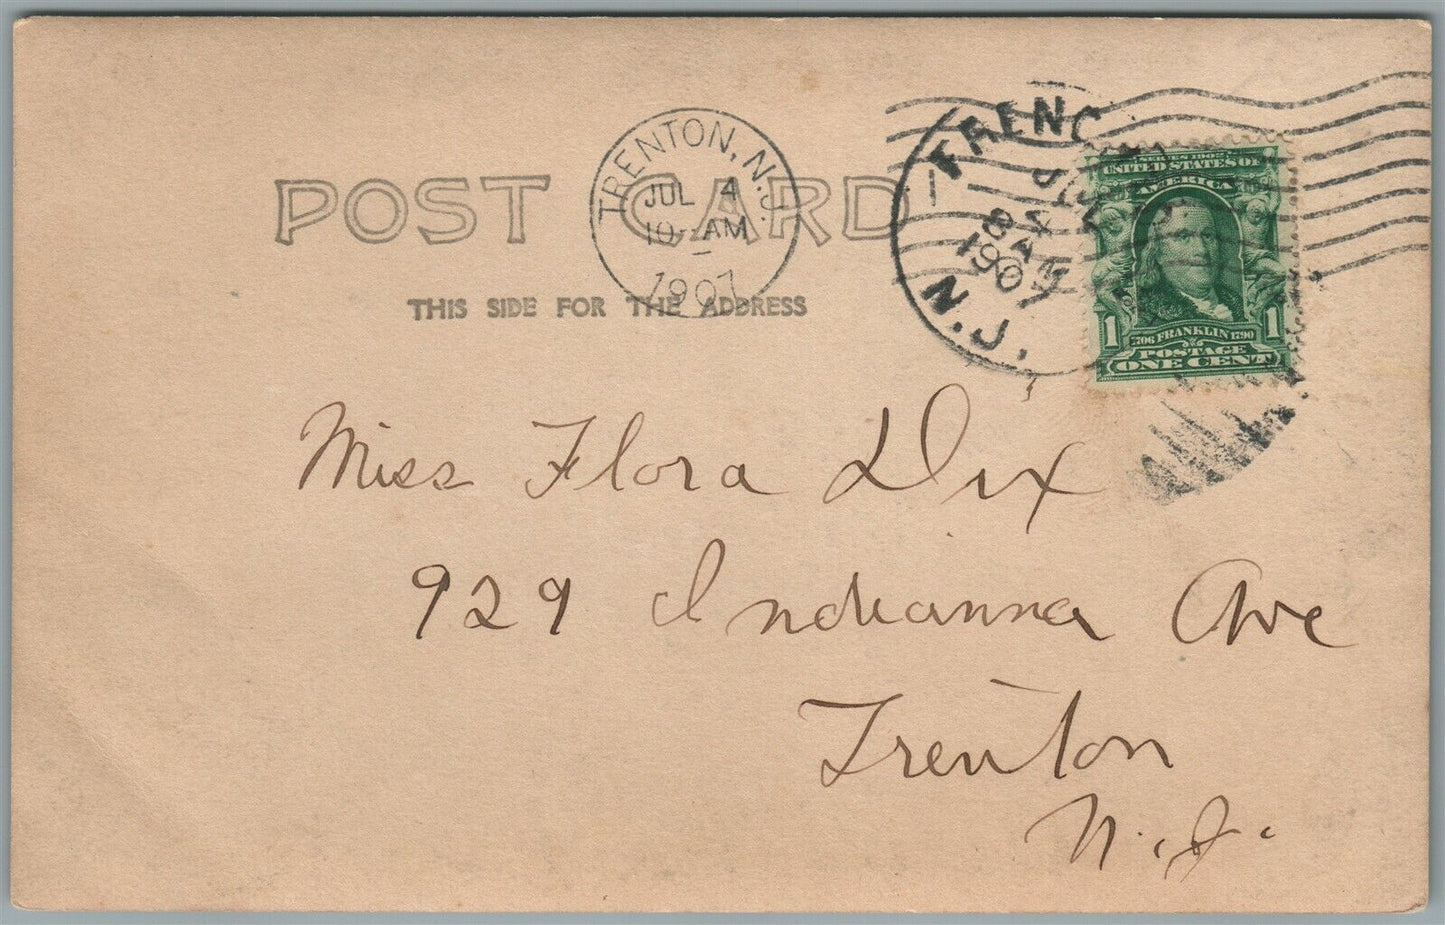 POST CARD
THIS SIDE FOR THE ADDRESS
TRENTON, N.J.
JUL 4
10-AM
1907
FRENC
8 AM
1907
N.J.
SERIES 1902
UNITED STATES OF
AMERICA
1706 FRANKLIN 1790
POSTAGE
1 ONE CENT 1
Miss Flora Dix
929 Indianna Ave
Trenton
N.J.